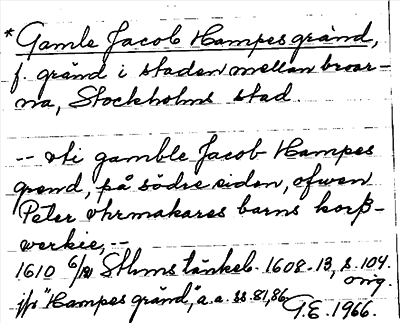 * Gamle Jacob Hampes gränd,
f. gränd i staden mellan broar-
na, Stockholms stad.
-- uti gamble Jacob Hampes
grend, på södre sidan, ofwen
Peter uhrmakares barns korß-
werkie, --
1610 6/ Sthms tänkeb. 1608-13, s. 104.
orig.
jfr "Hampes gränd", a.a. ss. 81, 86
G.E. 1966.